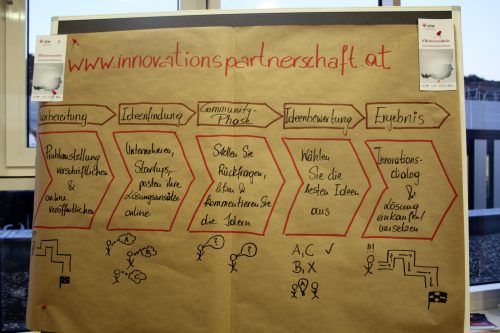 www.innovationspartnerschaft.at
Vorbereitung
Ideenfindung
Community-
Phase
Ideenbewertung
Ergebnis
Problemstellung
verschriftlichen
&
online
veröffentlichen
Unternehmen,
Startups,
posten ihre
Lösungsansätze
online
Stellen Sie
Rückfragen,
liken &
kommentieren Sie
die Ideen
Wählen
Sie die
besten Ideen
aus
Innovations-
dialog
&
Lösung
einkaufen/
umsetzen
A
B
C
?
?
A, C ✓
B, X
A
!!!